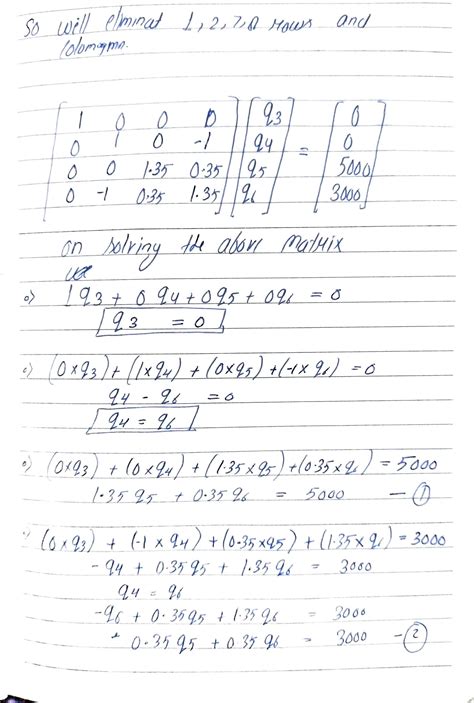 So will elminat 1, 2, 7, 8 rows and
colomns.
[ 1 0 0 0 ] [ q3 ] [ 0 ]
[ 0 1 0 -1 ] [ q4 ] = [ 0 ]
[ 0 0 1.35 0.35 ] [ q5 ] [ 5000 ]
[ 0 -1 0.35 1.35 ] [ q6 ] [ 3000 ]
on solving the above matrix
1q3 + 0q4 + 0q5 + 0q6 = 0
q3 = 0
(0×q3) + (1×q4) + (0×q5) + (-1×q6) = 0
q4 - q6 = 0
q4 = q6
(0×q3) + (0×q4) + (1.35×q5) + (0.35×q6) = 5000
1.35q5 + 0.35q6 = 5000 — ①
(0×q3) + (-1×q4) + (0.35×q5) + (1.35×q6) = 3000
-q4 + 0.35q5 + 1.35q6 = 3000
q4 = q6
-q6 + 0.35q5 + 1.35q6 = 3000
0.35q5 + 0.35q6 = 3000 — ②